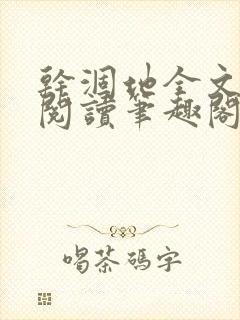 幹涸地全文
閱讀筆趣閣
喝茶碼字